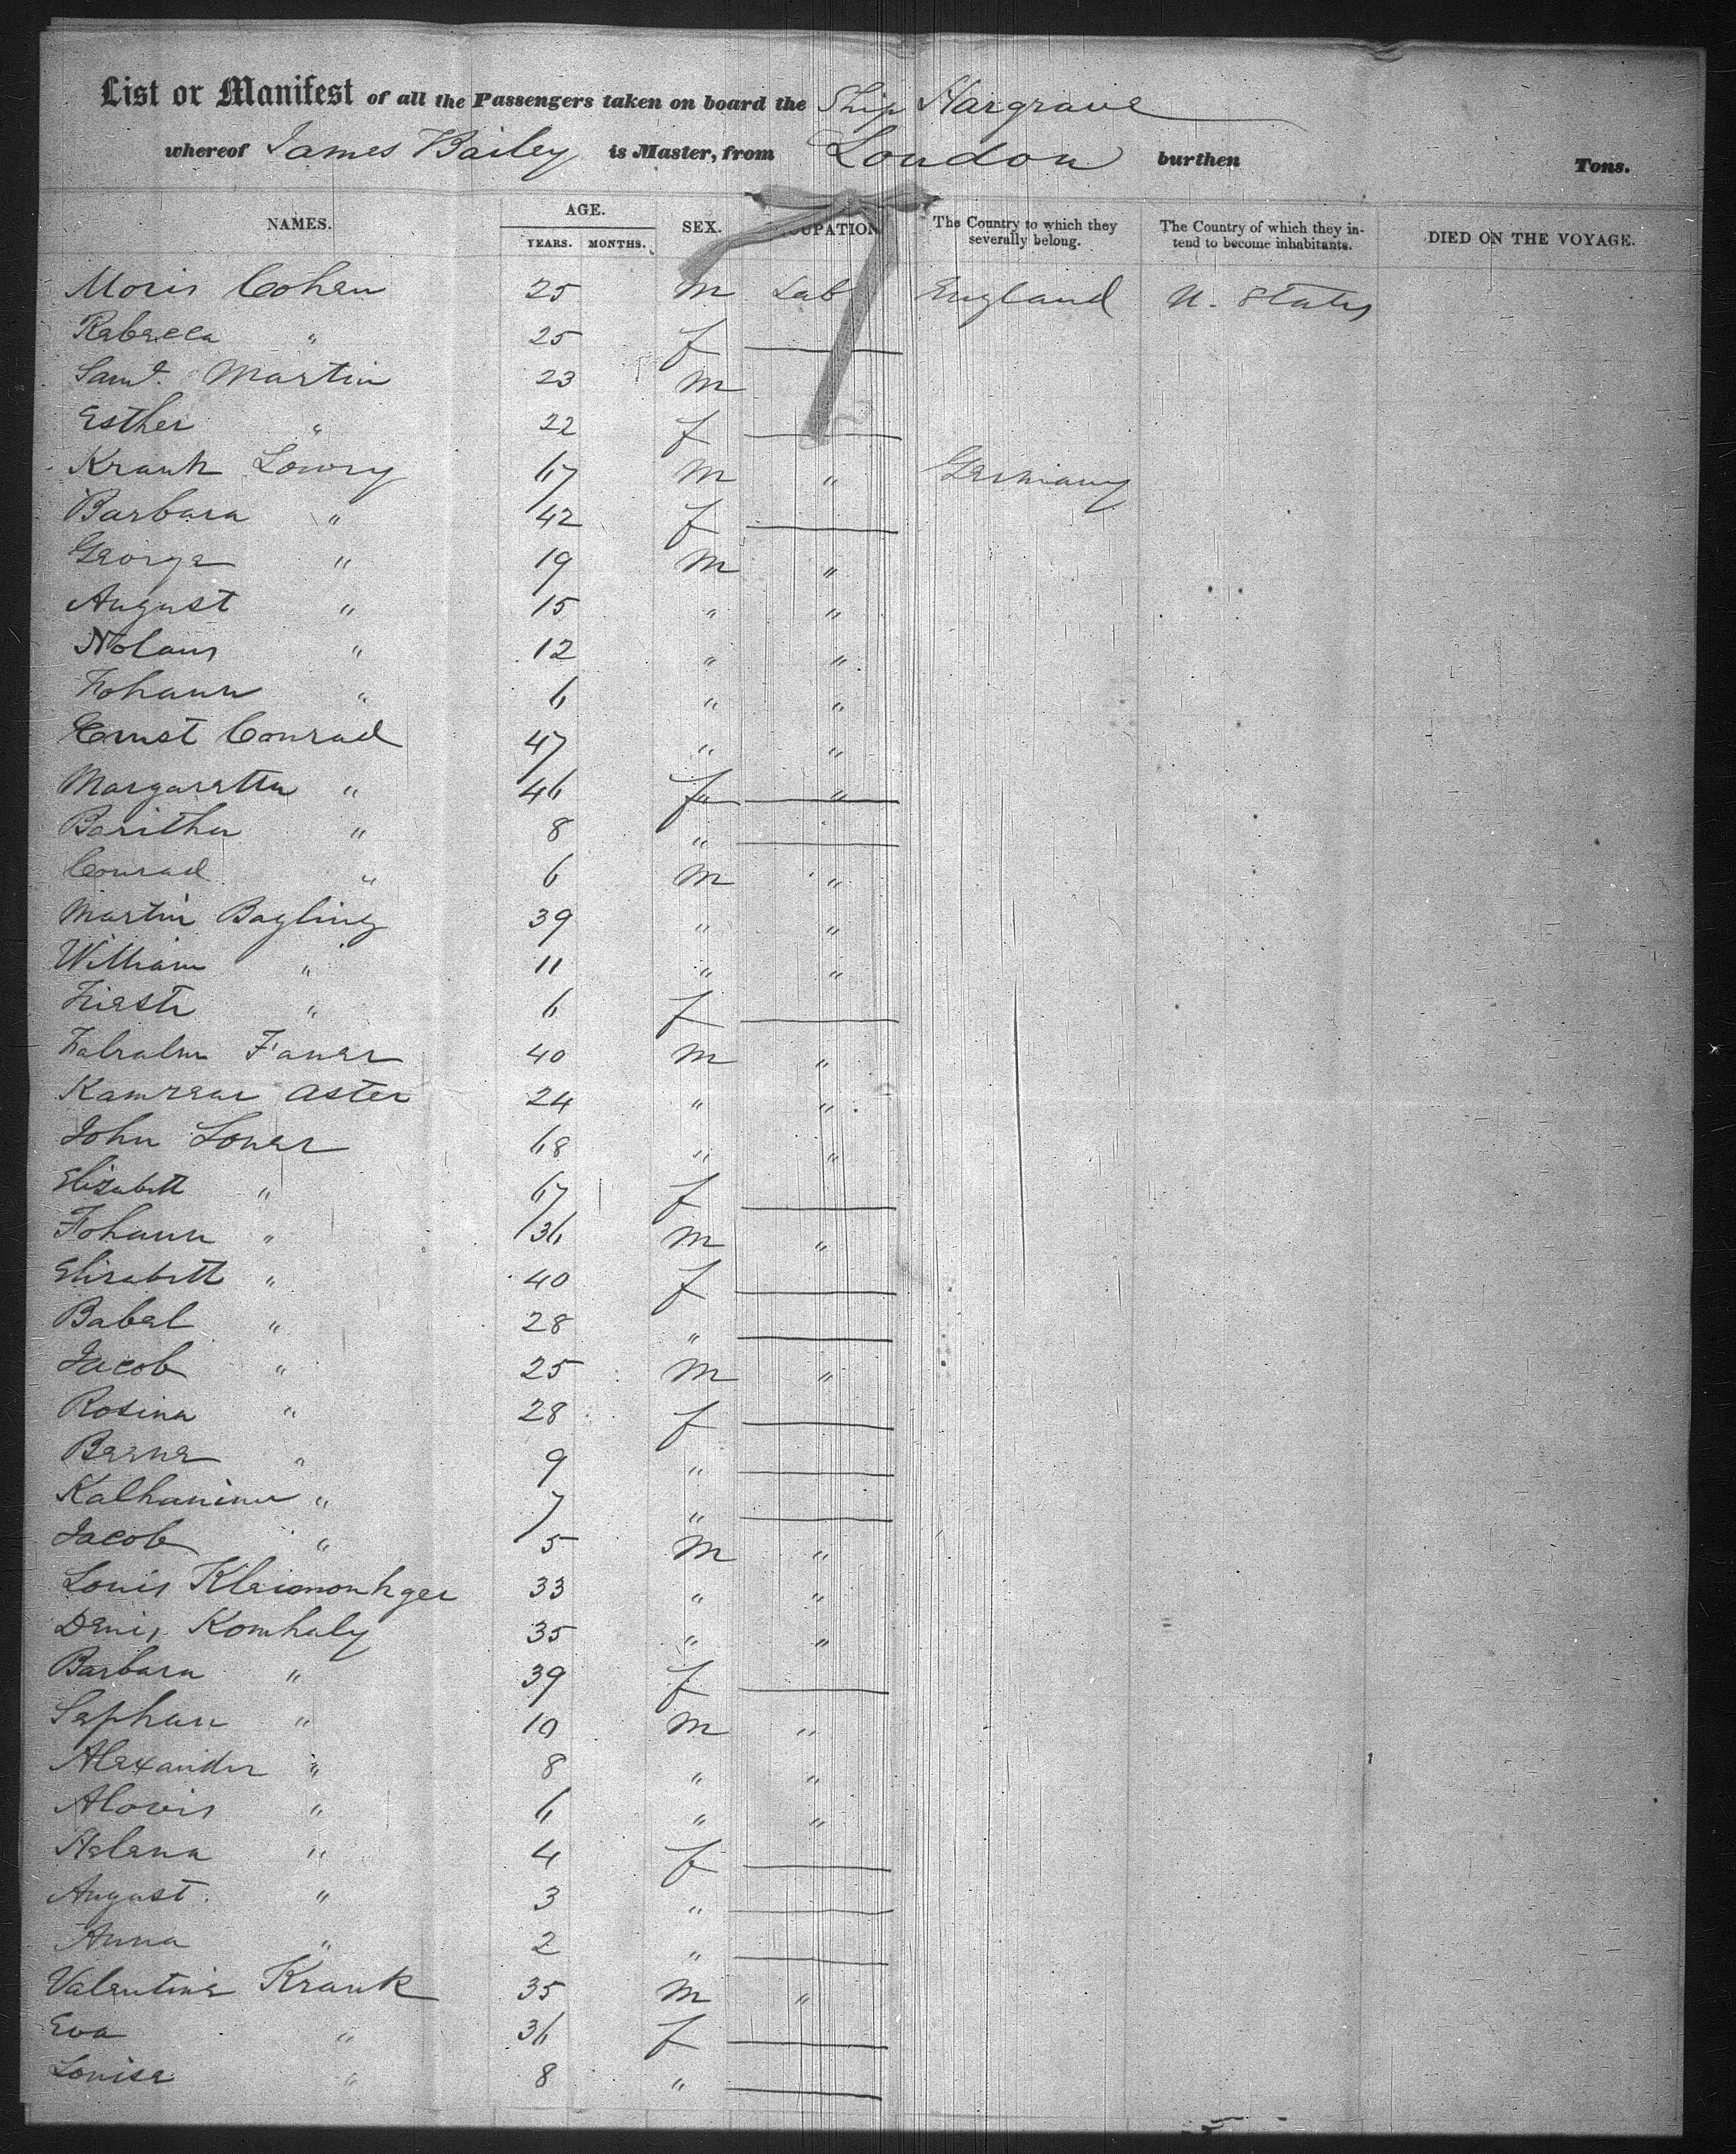 List or Manifest of all the Passengers taken on board the Ship Hargrave
whereof James Bailey is Master, from London burthen Tons.
NAMES. AGE. YEARS. MONTHS. SEX. OCCUPATION The Country to which they severally belong. The Country of which they intend to become inhabitants. DIED ON THE VOYAGE.
Moris Cohen 25 m Lab England U. States
Rebecca " 25 f —
Saml. Martin 23 m
Esther " 22 f —
Krank Lowry 67 m " Germany
Barbara " 42 f —
George " 19 m "
August " 15 " "
Nolaus " 12 " "
Johann " 6 " "
Ernst Conrad 47 " "
Margaretta " 46 f "
Baritha " 8 " —
Conrad " 6 m "
Martin Bagling 39 " "
William " 11 " "
" 6 f —
40 m "
Aster 24 " "
John Lower 68 " "
Elizabett " 67 f —
Johann " 36 m "
Elisabett " 40 f —
Babel " 28 " —
Jacob " 25 m "
Rosina " 28 f —
" 9 " —
Kalhanina " 7 " —
Jacob " 5 m "
Louis 33 " "
Denis Komhaly 35 " "
Barbara " 39 f —
Sephan " 10 m "
Alexander " 8 " "
Alovis " 6 " "
Helena " 4 f —
August " 3 " —
Anna " 2 " —
Valentine Krank 35 m "
Eva " 36 f —
Louise " 8 " —